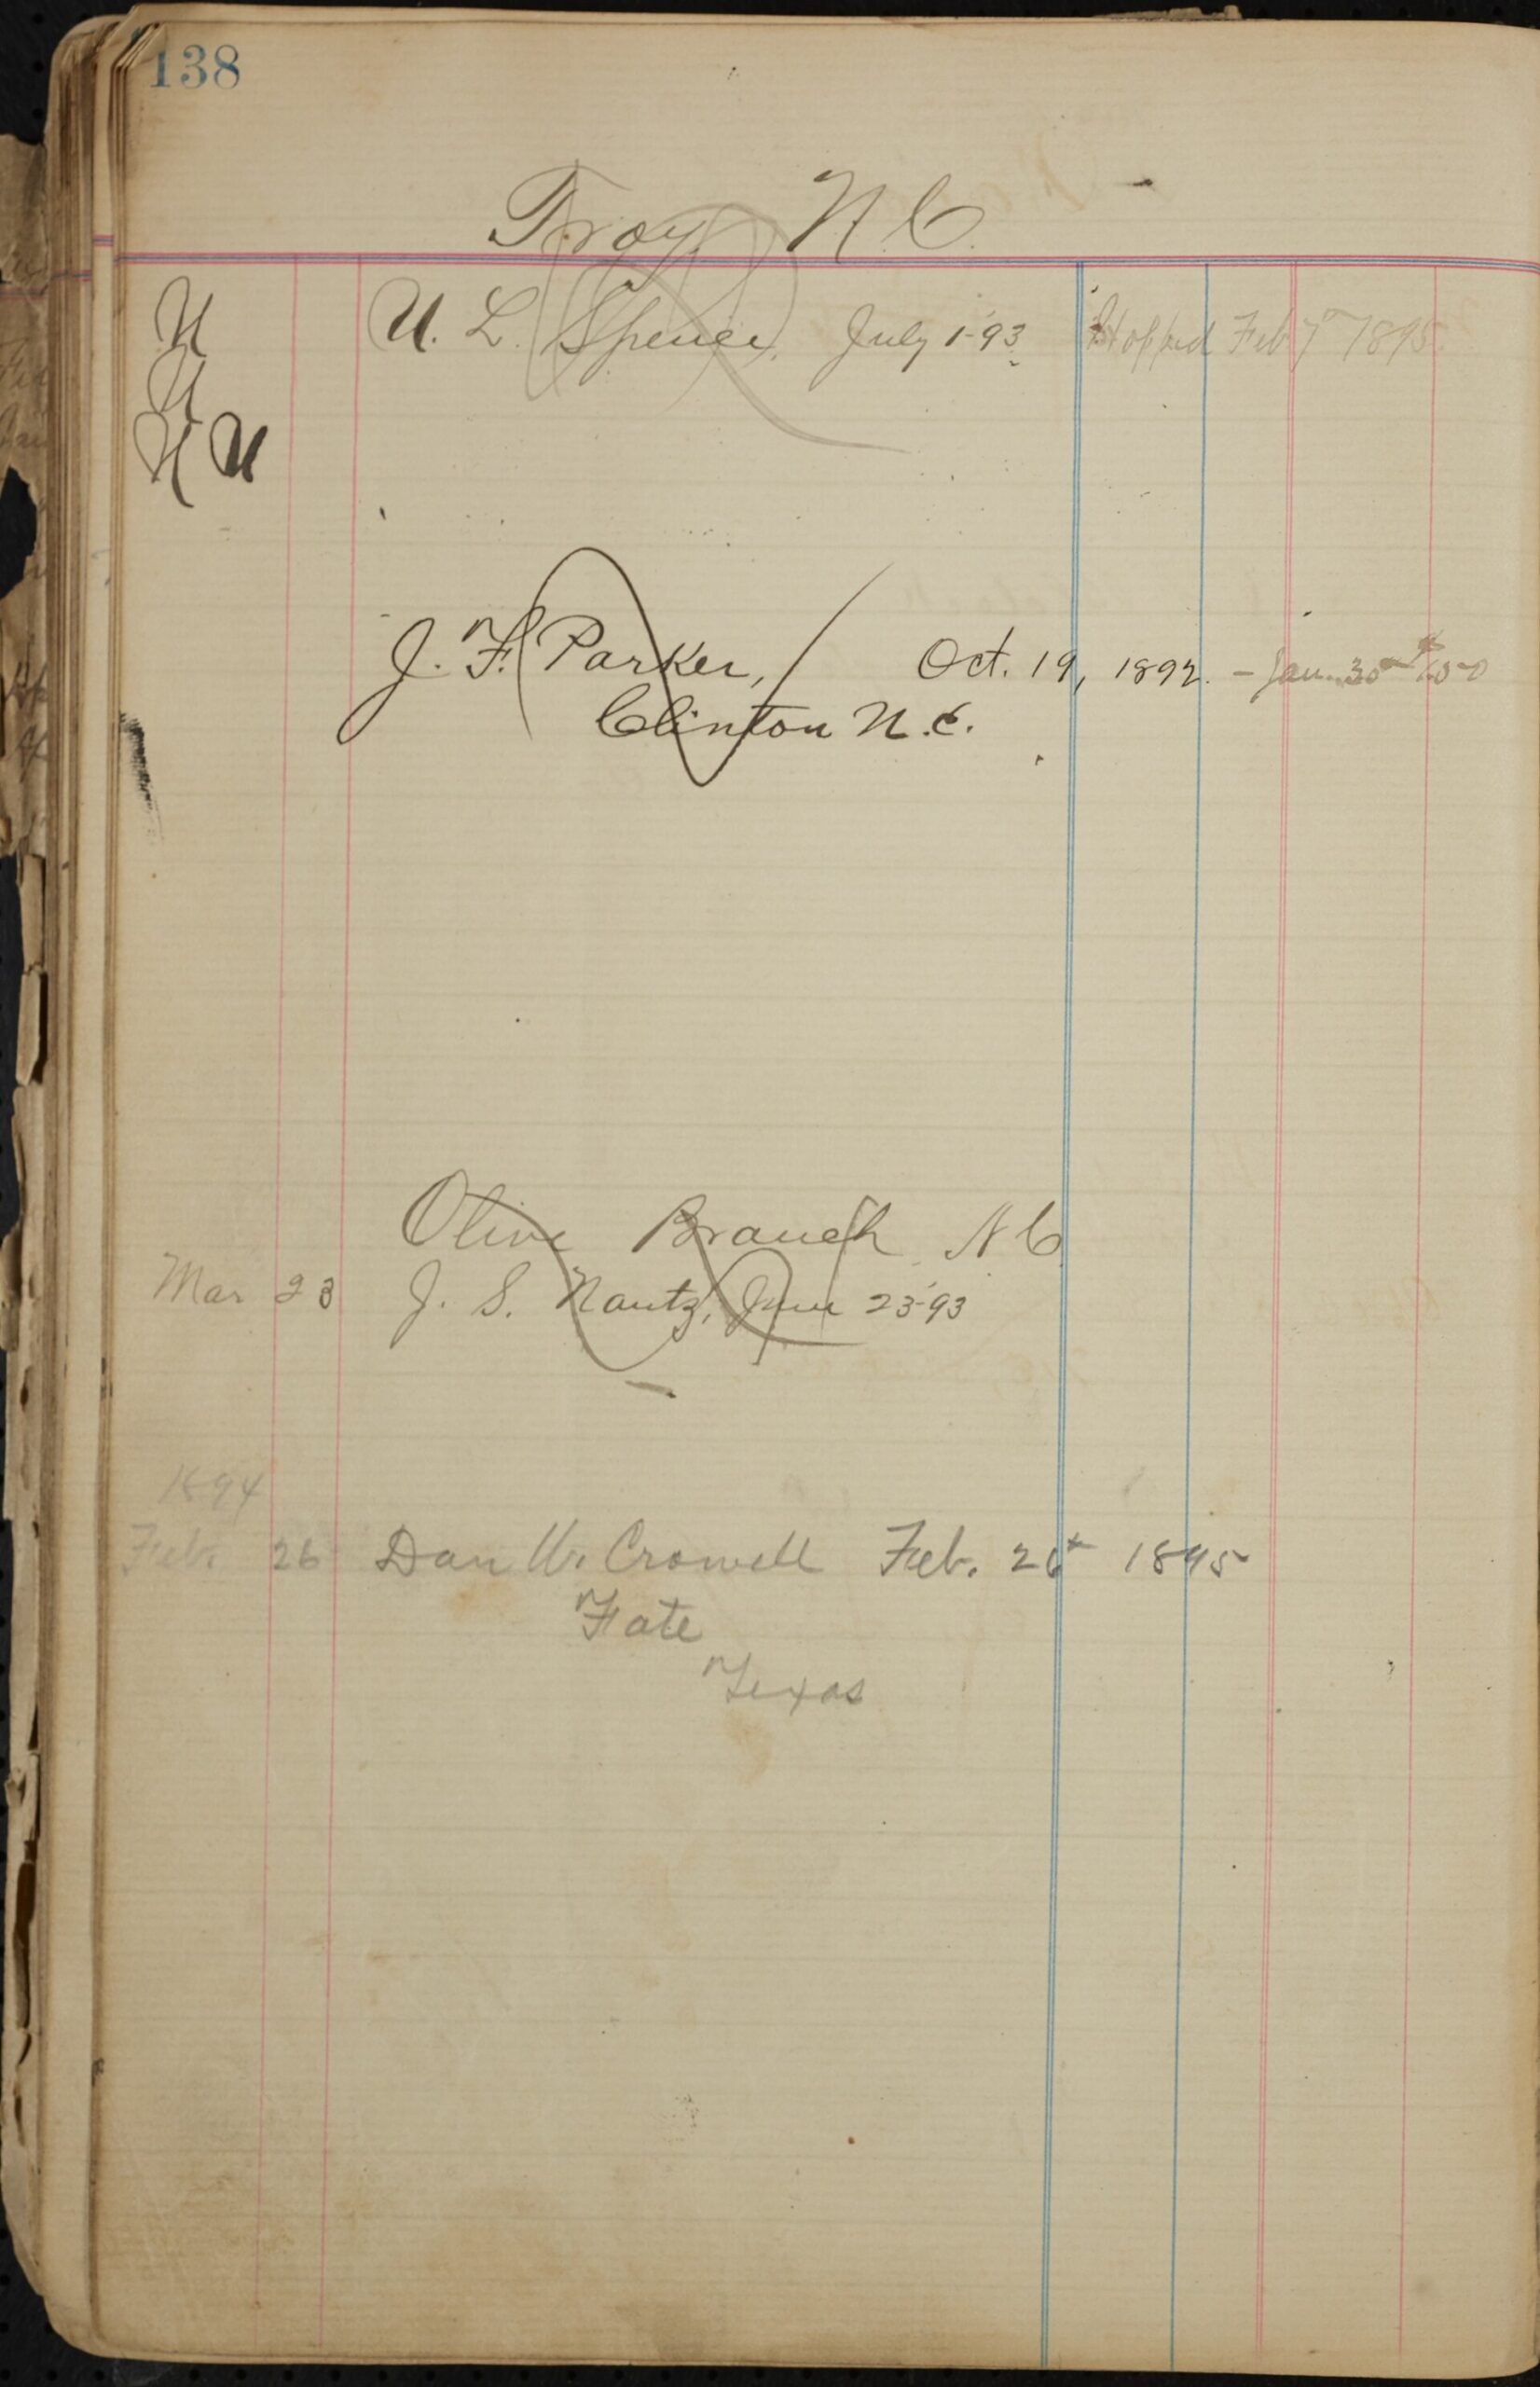 138
Troy N C
U U. L. Spencer, July 1-93 Stopped Feb 7th 1895
U
U U
J. F. Parker, Oct. 19, 1892. - Jan. 30th
Clinton N.C.
Olive Branch N C
Mar 23 J. S. Nantz, June 23-93
1894
Feb. 26 Dan W. Crowell Feb. 26th 1895
Fate
Texas